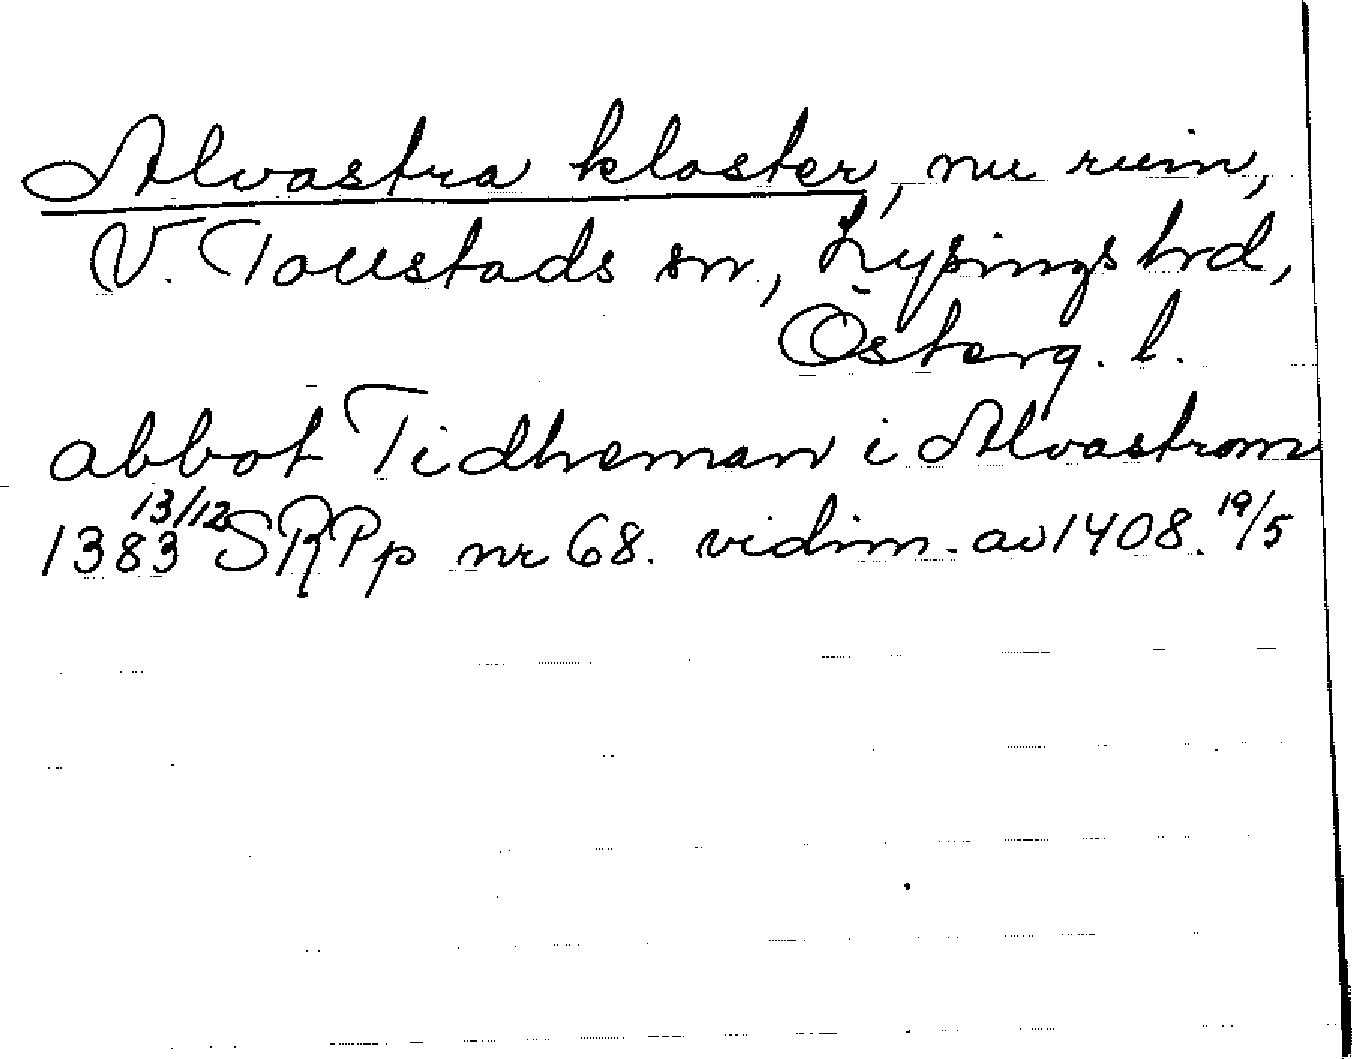 Alvastra kloster, nu ruin,
V. Tollstads sn, Lysings hrd,
Österg. l.
abbot Tidheman i Alvastrom
1383 13/12 SRPp nr 68. vidim. av 1408. 19/5